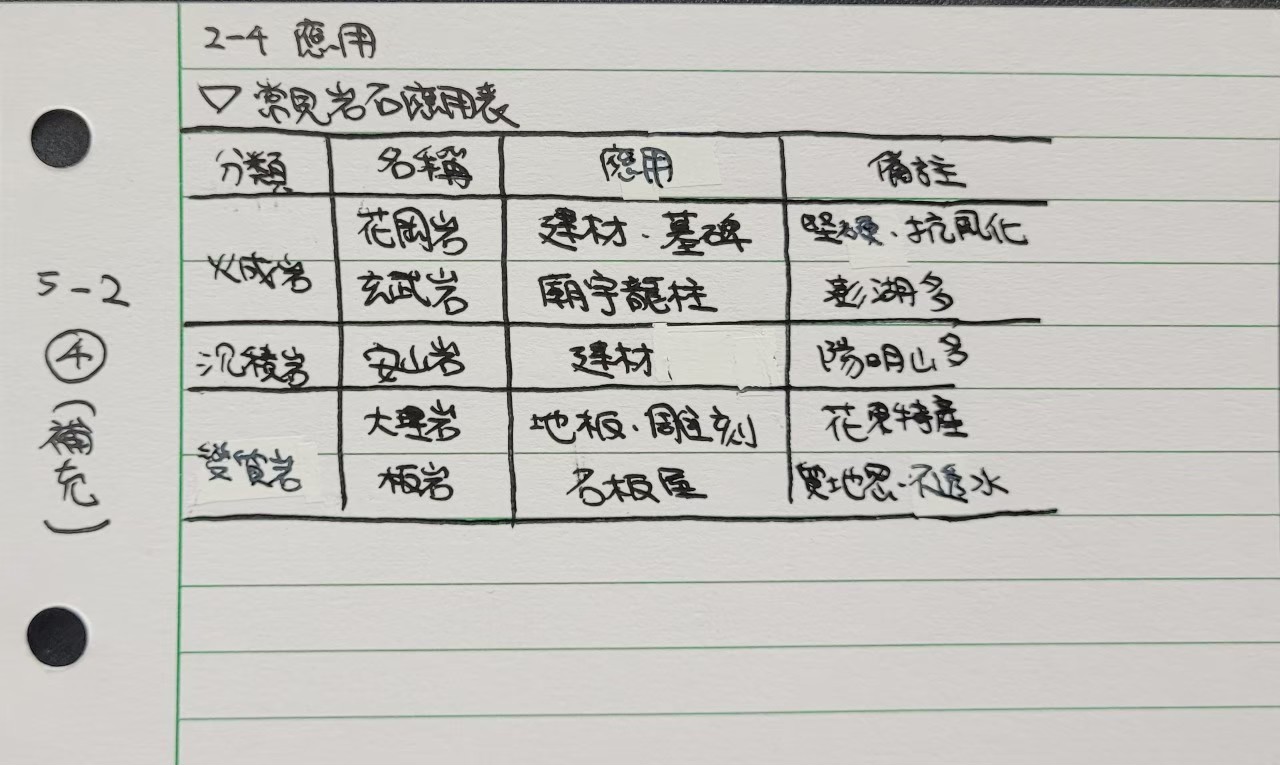 2-4 應用
▽ 常見岩石應用表
分類 名稱 應用 備註
火成岩 花岡岩 建材.墓碑 堅硬.抗風化
玄武岩 廟宇龍柱 澎湖多
沉積岩 安山岩 建材 陽明山多
變質岩 大理岩 地板.雕刻 花東特產
板岩 石板屋 質地密.不透水
5-2
④
(補充)